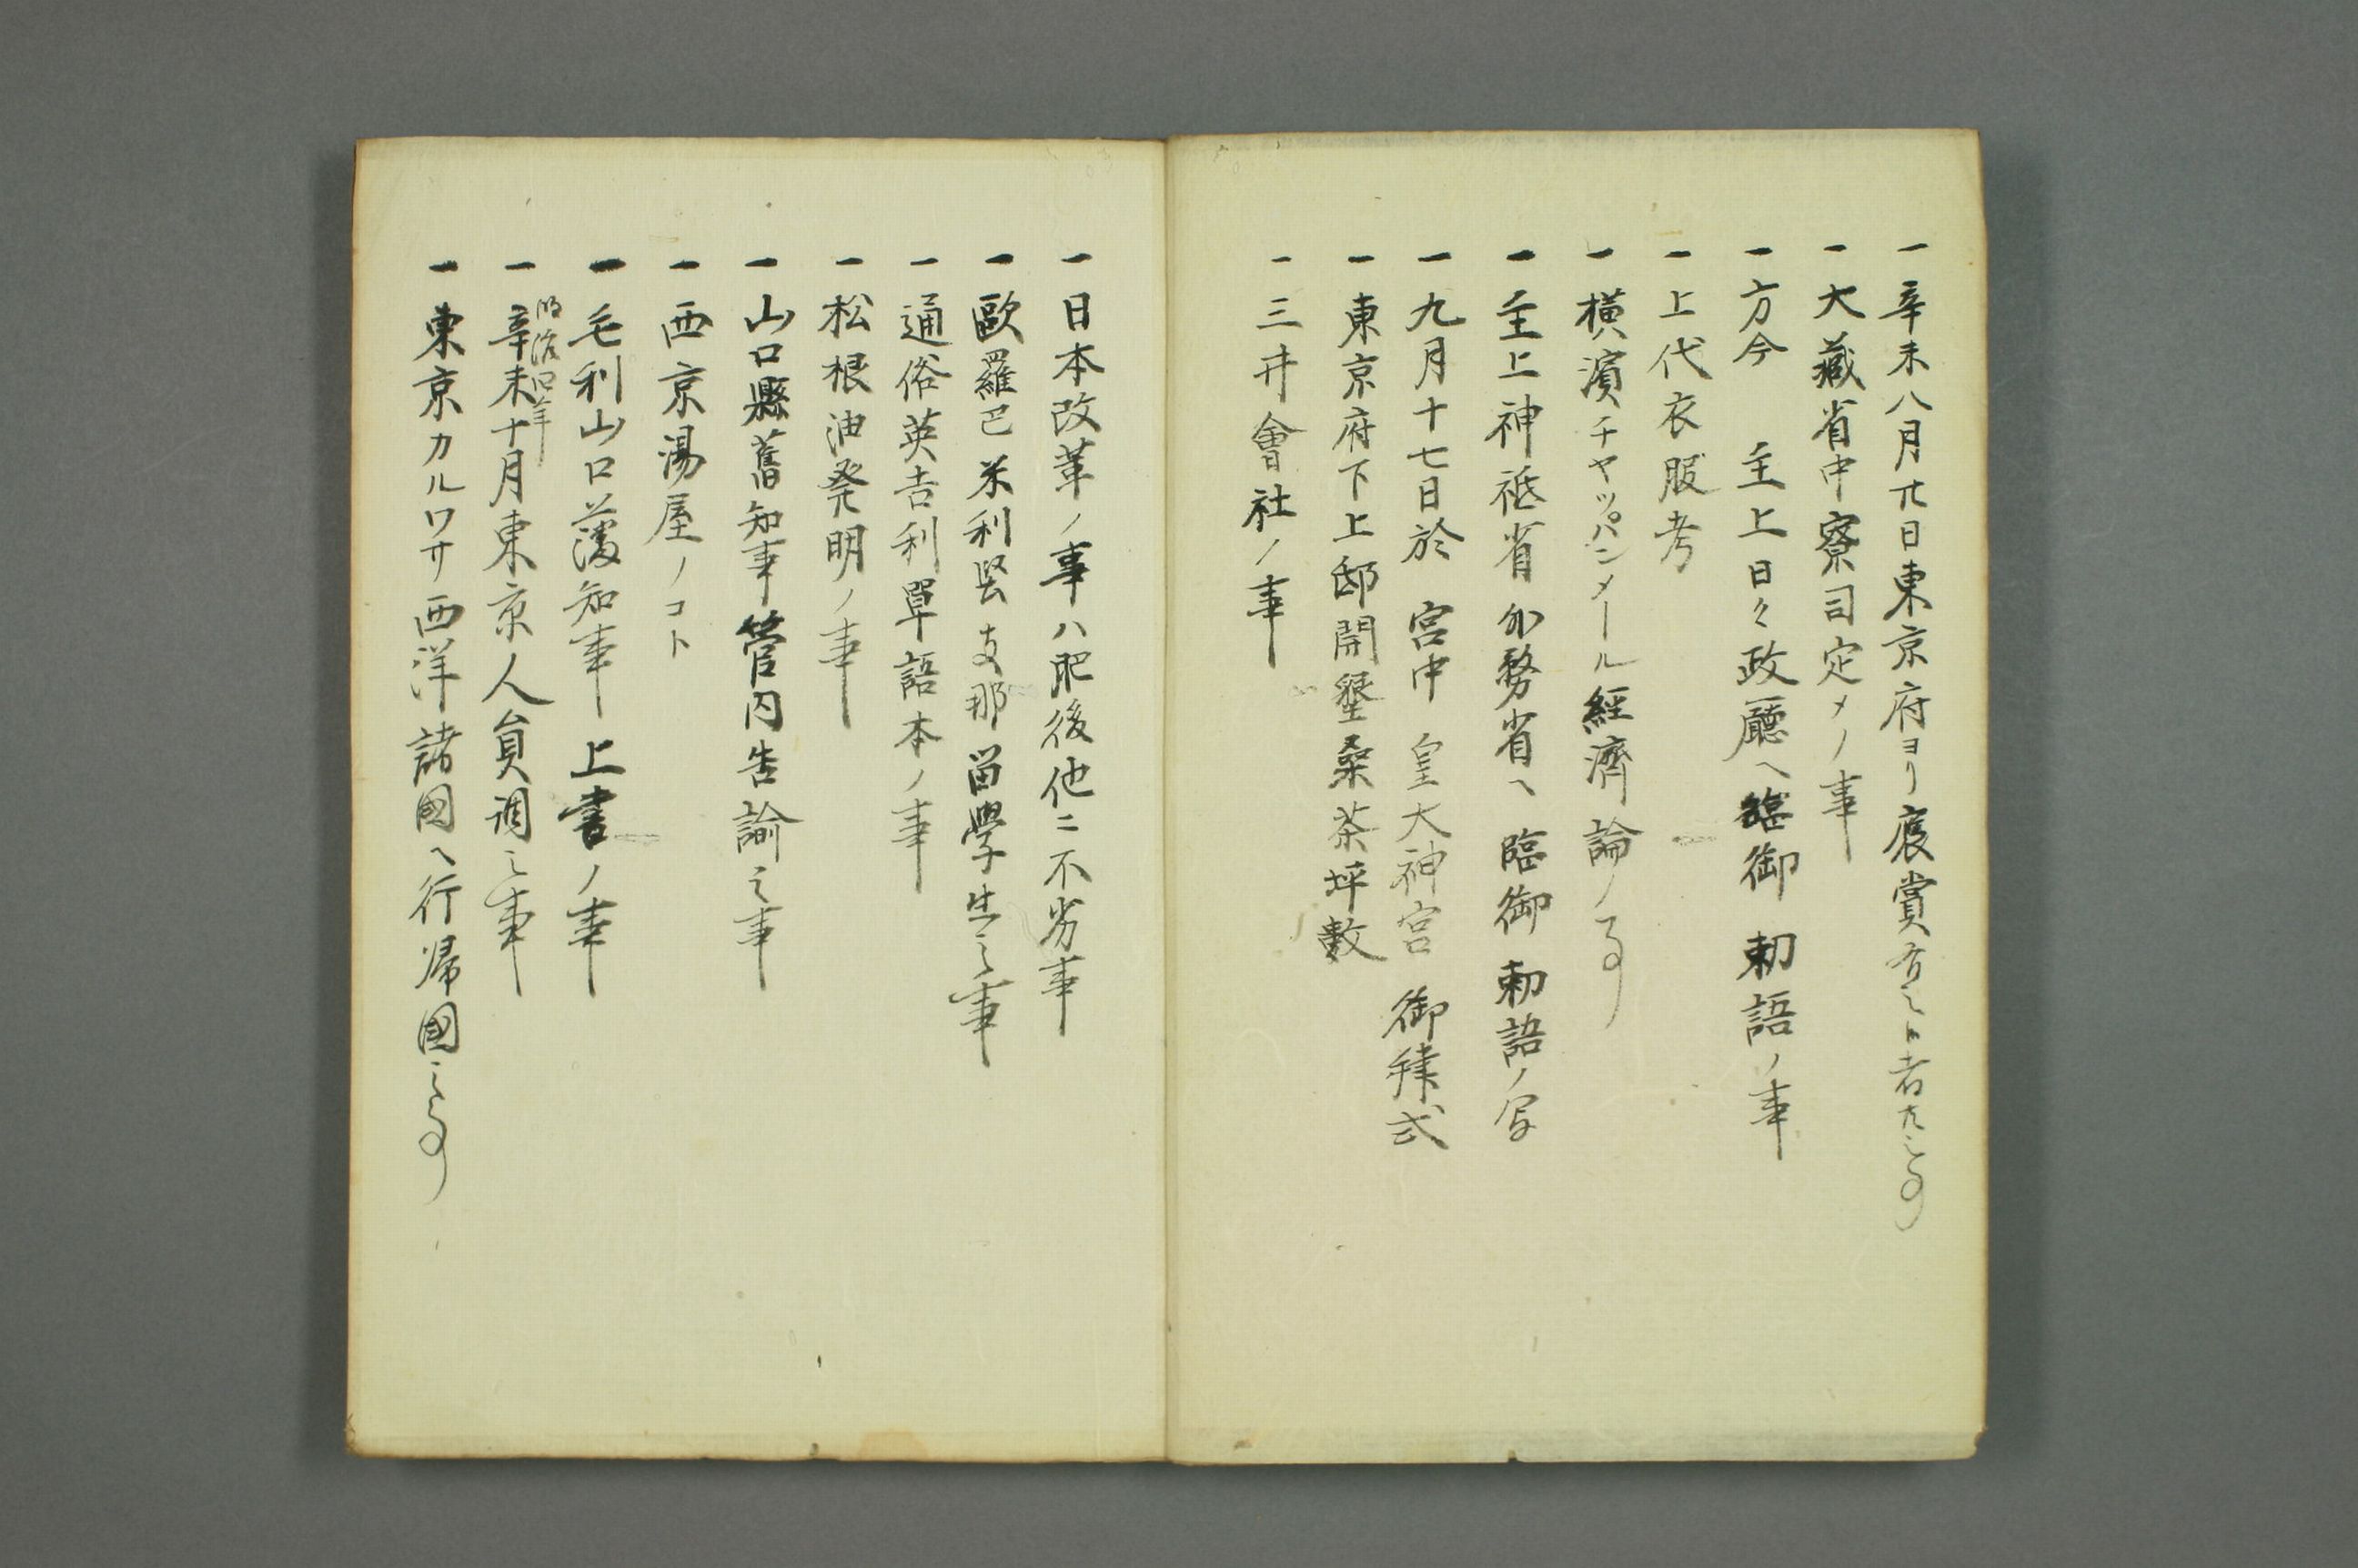 一辛未八月廿日東京府ヨリ褒賞有之候者共之事
一大藏省中寮司定メノ事
一方今　主上日々政廳ヘ臨御　勅語ノ事
一上代衣服考
一横濱チヤッパンメール經濟論ノ事
一主上神祇省外務省ヘ　臨御勅語ノ写
一九月十七日於　宮中　皇大神宮　御拝式
一東京府下上邸開墾桑茶坪數
一三井會社ノ事
一日本改革ノ事ハ肥後他ニ不劣事
一歐羅巴米利堅支那留學生之事
一通俗英吉利單語本ノ事
一松根油発明ノ事
一山口縣舊知事管内告諭之事
一西京湯屋ノコト
一毛利山口藩知事　上書ノ事
一辛未十月東京人員調之事
明治四年
一東京カルワサ西洋諸國ヘ行帰國之事